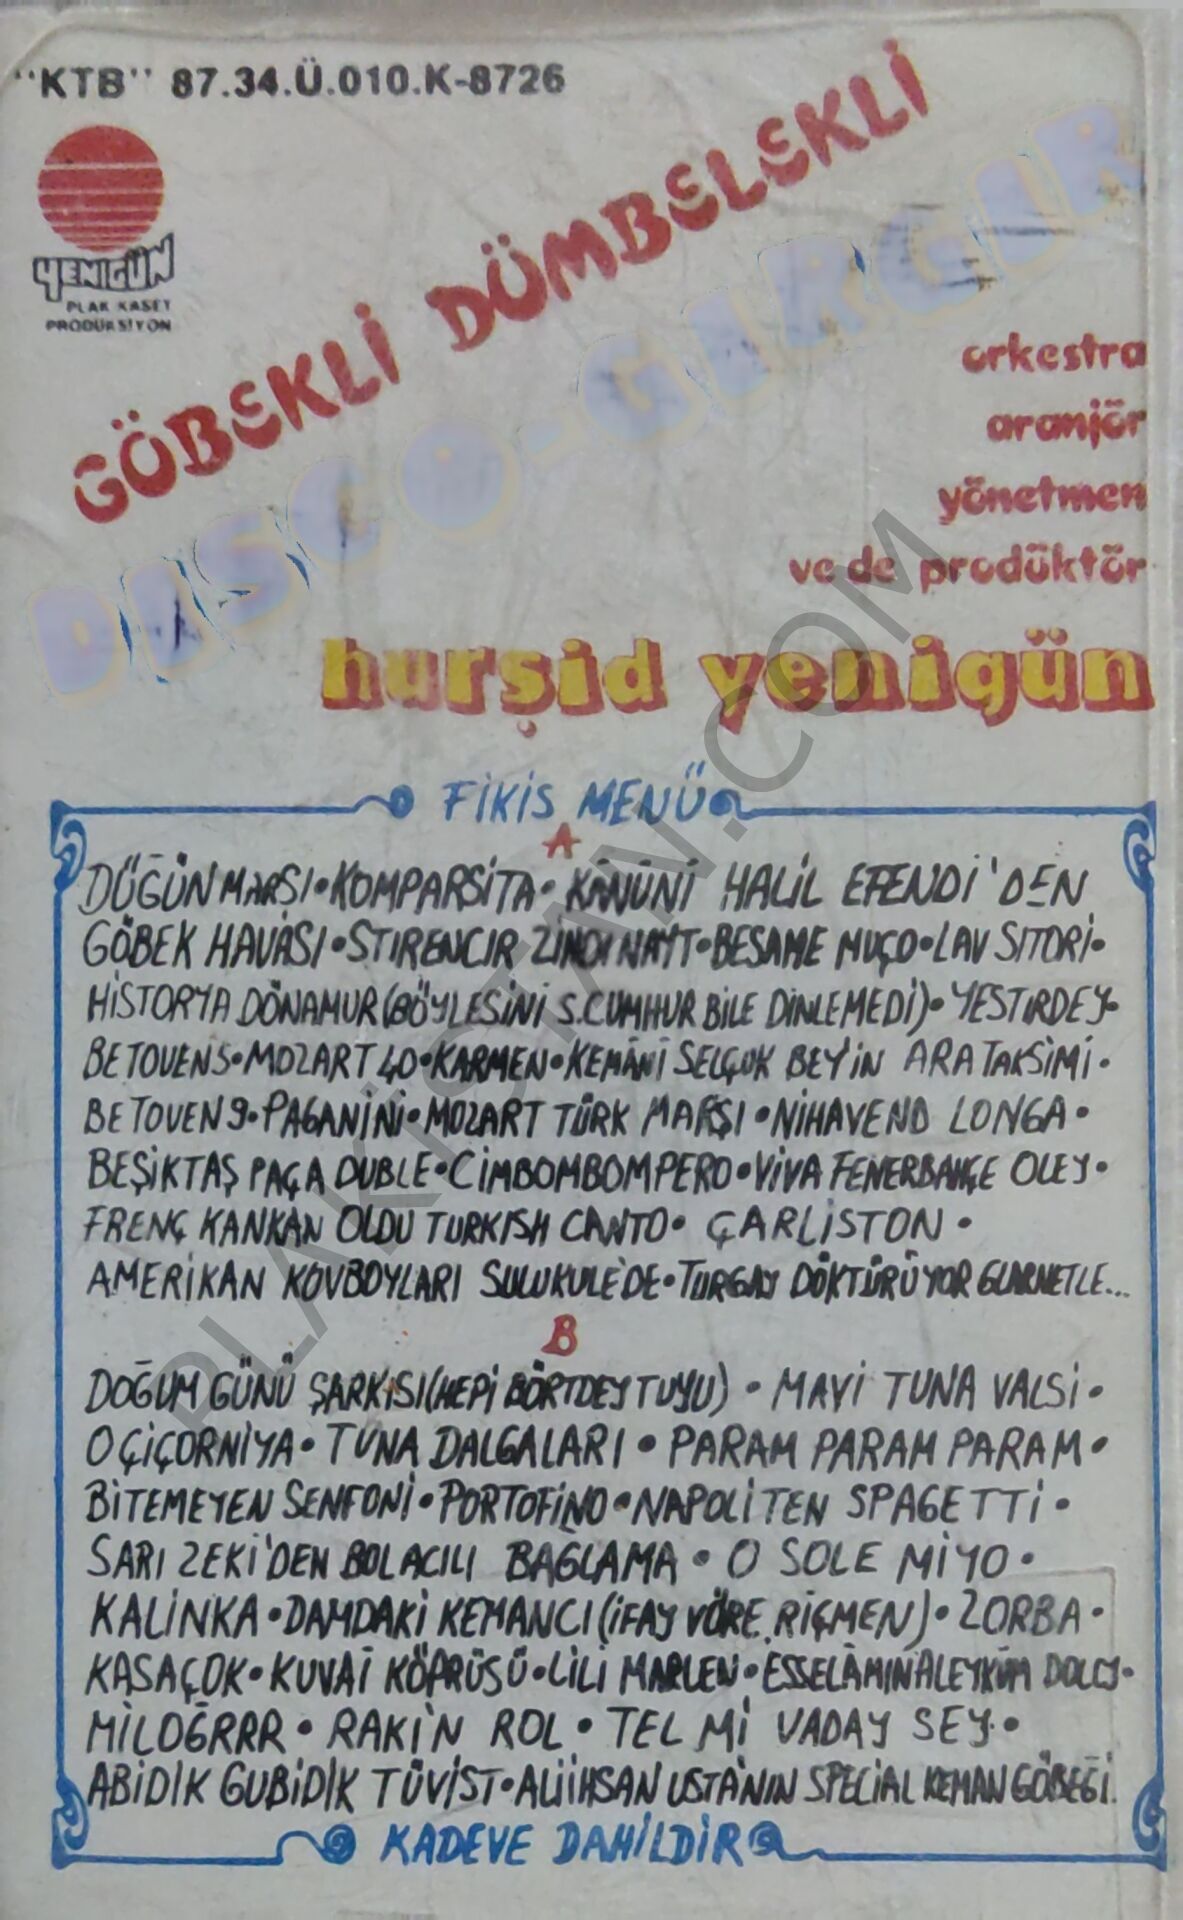 "KTB" 87.34.Ü.010.K-8726
YENİGÜN
PLAK KASET
PRODÜKSİYON
GÖBEKLİ DÜMBELEKLİ
DISCO-GIRGIR
orkestra
aranjör
yönetmen
ve de prodüktör
hurşid yenigün
FİKİS MENÜ
A
DÜĞÜN MARŞI•KOMPARSİTA•KÂNÛNİ HALİL EFENDİ'DEN
GÖBEK HAVASI•STIRENCIR ZINDI NAYT•BESAME MUÇO•LAV SITORİ•
HİSTORYA DÖNAMUR(BÖYLESİNİ S.CUMHUR BİLE DİNLEMEDİ)•YESTIRDEY•
BETOVEN5•MOZART 40•KARMEN•KEMÂNİ SELÇUK BEY'İN ARA TAKSİMİ•
BETOVEN 9•PAGANİNİ•MOZART TÜRK MARŞI•NİHAVEND LONGA•
BEŞİKTAŞ PAÇA DUBLE•CİMBOMBOMPERO•VİVA FENERBAHÇE OLEY•
FRENÇ KANKAN OLDU TURKISH CANTO• ÇARLİSTON•
AMERİKAN KOVBOYLARI SULUKULE'DE•TURGAY DÖKTÜRÜYOR GLARNETLE...
B
DOĞUM GÜNÜ ŞARKISI(HEPİ BÖRTDEY TUYU)•MAVİ TUNA VALSİ•
OÇİÇORNİYA•TUNA DALGALARI•PARAM PARAM PARAM•
BİTEMEYEN SENFONİ•PORTOFİNO•NAPOLİTEN SPAGETTİ•
SARI ZEKİ'DEN BOL ACILI BAGLAMA•O SOLE MİYO•
KALİNKA•DAMDAKİ KEMANCI(İFAY VÖRE RİÇMEN)•ZORBA•
KASAÇOK•KUVAİ KÖPRÜSÜ•LİLİ MARLEN•ESSELÂMINALEYKÜM DOLLY•
MİLOĞRRR•RAKİ'N ROL•TEL Mİ VADAY SEY•
ABİDİK GUBİDİK TÜVİST•ALİİHSAN USTA'NIN SPECİAL KEMAN GÖBEĞİ.
KADEVE DAHİLDİR
PLAKİSTAN.COM